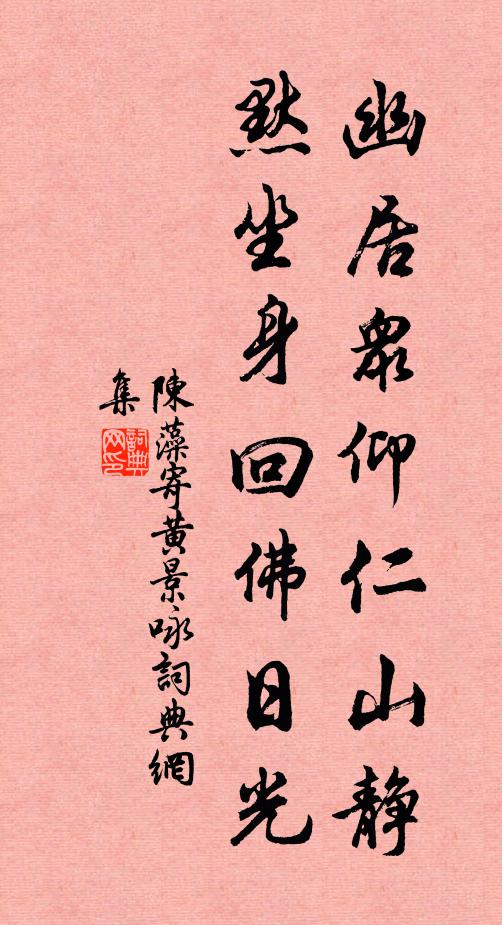 幽居眾仰仁山靜
默坐身回佛日光
陳藻寄黃景咏詞典網
集
詞典
网印